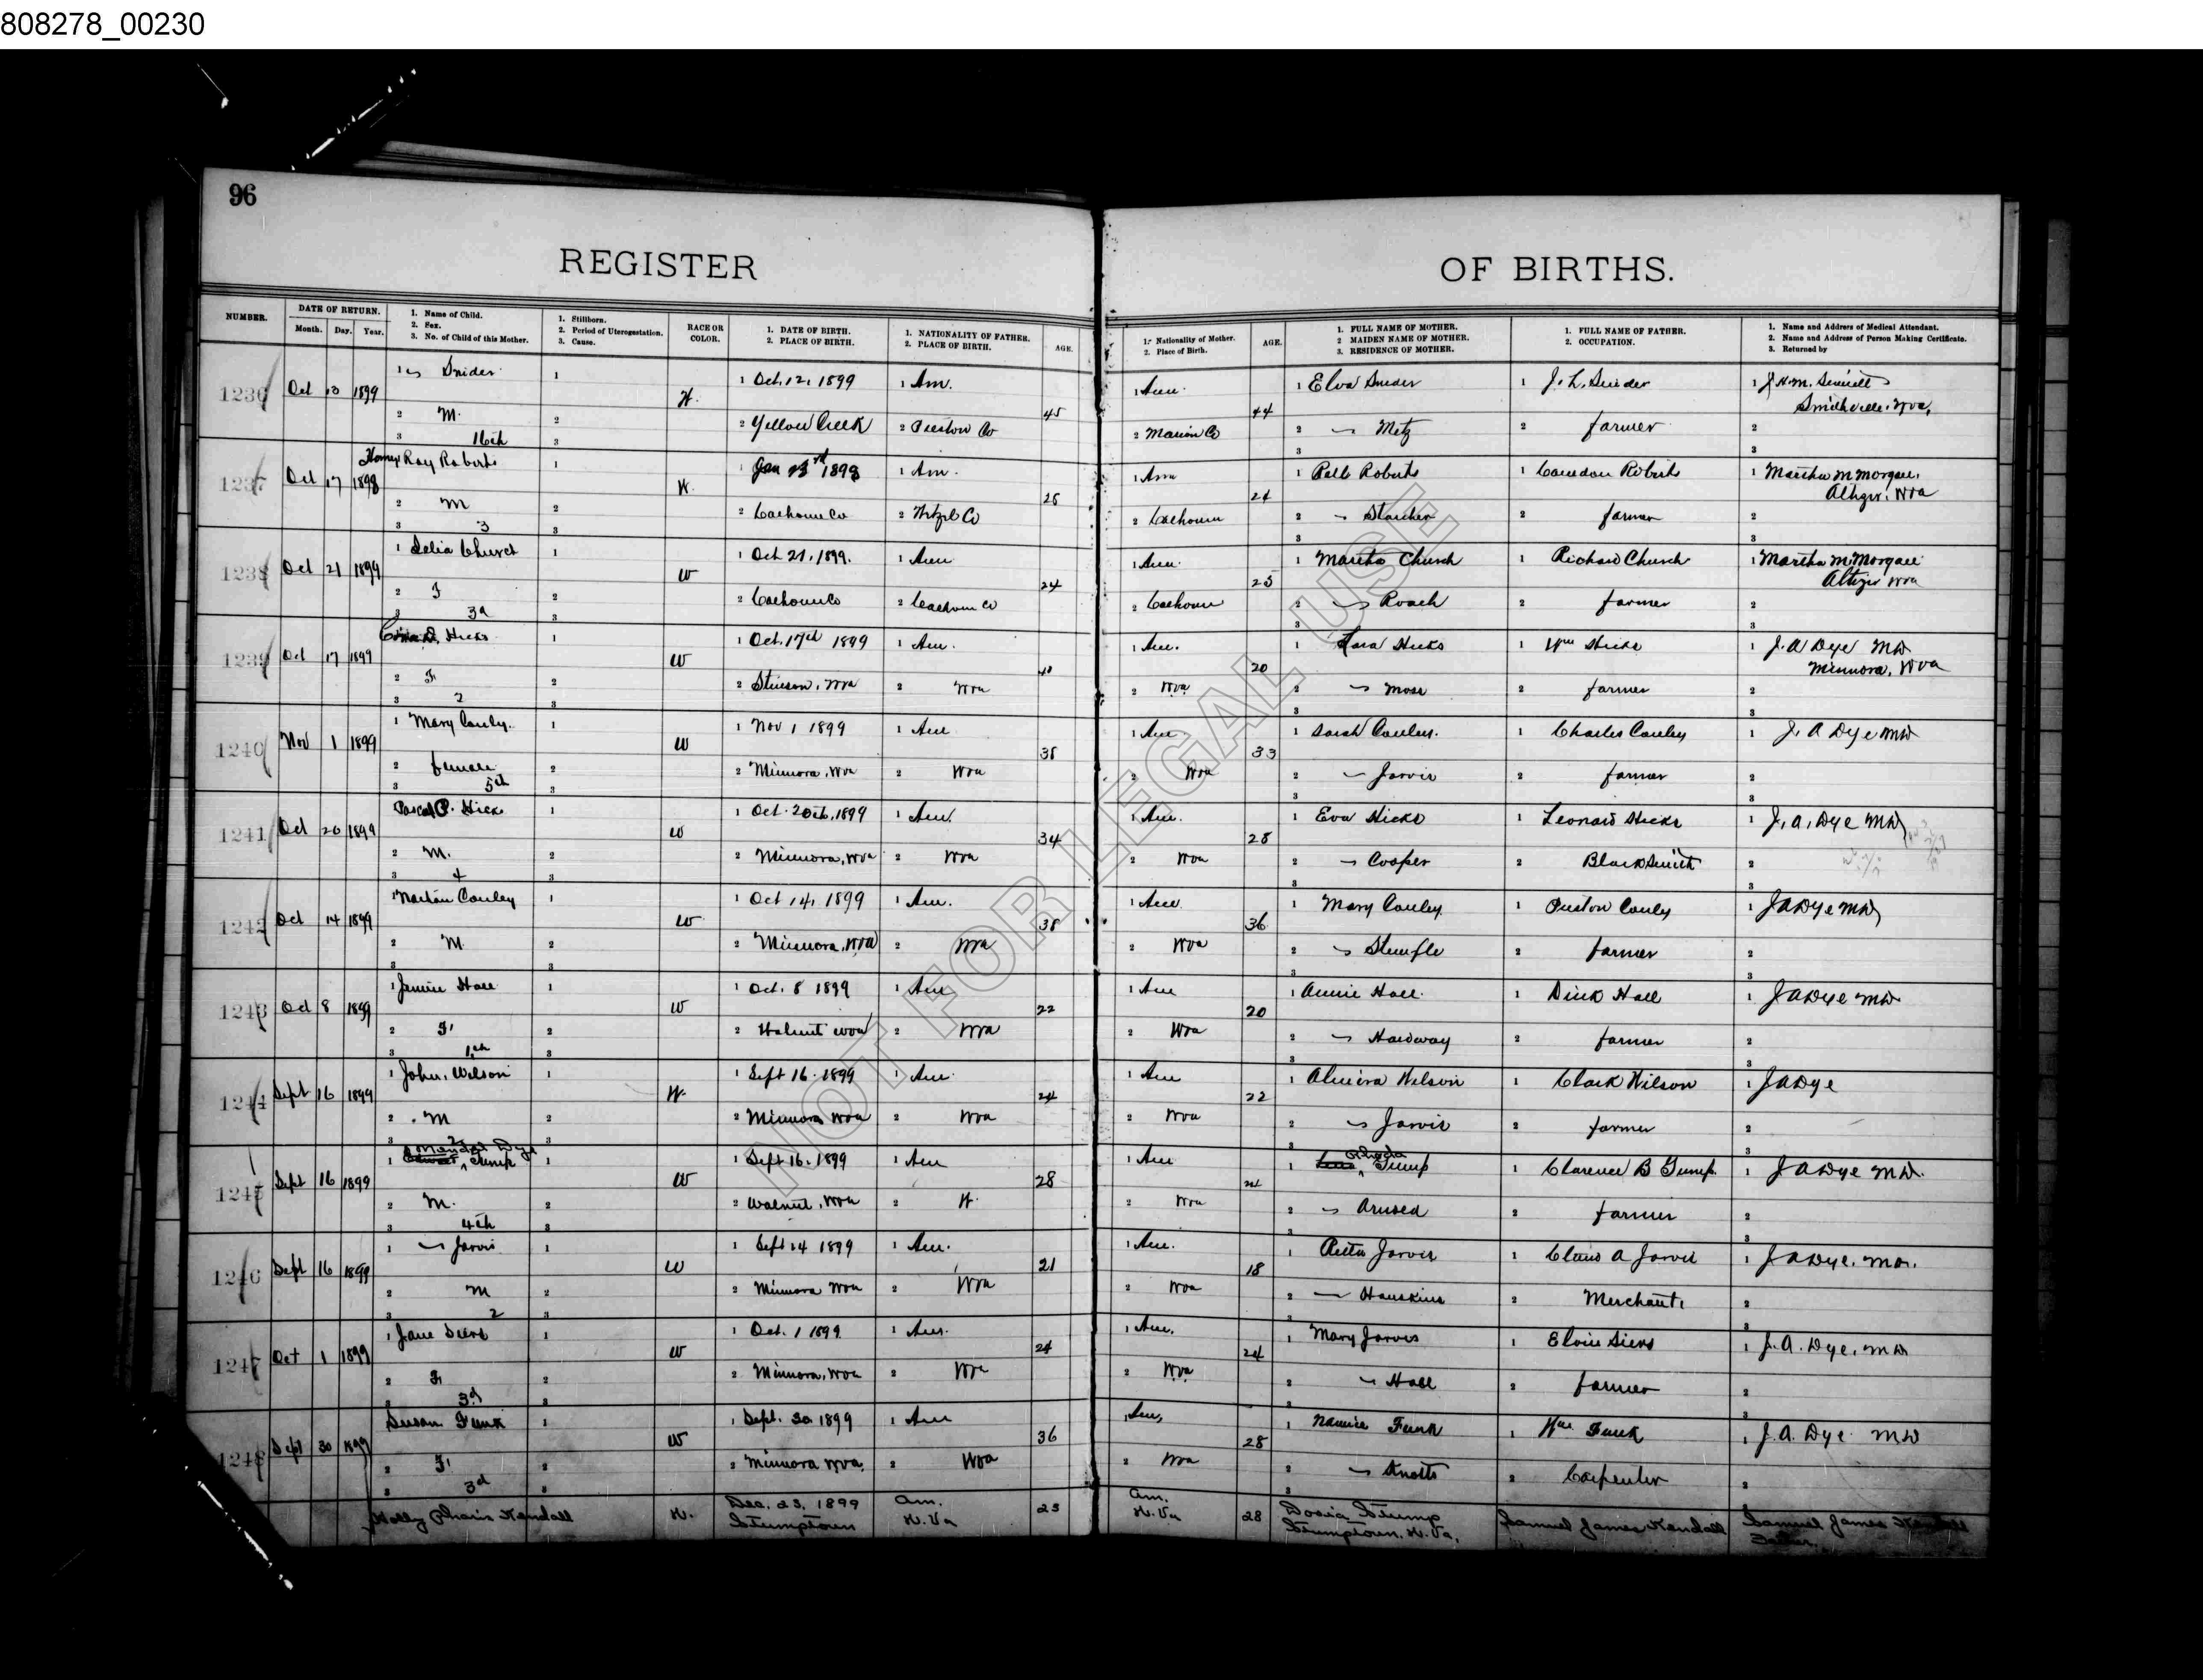 808278_00230
96
REGISTER OF BIRTHS.
NUMBER.
DATE OF RETURN.
Month. Day. Year.
1. Name of Child.
2. Sex.
3. No. of Child of this Mother.
1. Stillborn.
2. Period of Uterogestation.
3. Cause.
RACE OR COLOR.
1. DATE OF BIRTH.
2. PLACE OF BIRTH.
1. NATIONALITY OF FATHER.
2. PLACE OF BIRTH.
AGE.
1. Nationality of Mother.
2. Place of Birth.
AGE.
1. FULL NAME OF MOTHER.
2 MAIDEN NAME OF MOTHER.
3. RESIDENCE OF MOTHER.
1. FULL NAME OF FATHER.
2. OCCUPATION.
1. Name and Address of Medical Attendant.
2. Name and Address of Person Making Certificate.
3. Returned by
1236 Oct 13 1899 1 Snider 1 W. 1 Oct. 12, 1899 1 Am. 45 1 Am. 44 1 Elva Snider 1 J. L. Snider 1
Smithville, Wva,
2 M. 2 2 Yellow Creek 2 Preston Co 2 Marion Co 2 Metz 2 farmer 2
3 16th 3 3
1237 Oct 17 1898 Homer Roy Roberts 1 W. 1 Jan 1898 1 Am. 1 Am 24 1 Roberts 1 Roberts 1 Martha M Morgan,
Altizer, Wva
2 M 2 2 Calhoun Co 2 Wetzel Co 2 Calhoun 2 Starcher 2 farmer 2
3 3 3 3
1238 Oct 21 1899 1 Delia Church 1 W 1 Oct 21, 1899. 1 Am 24 1 Am. 1 Martha Church 1 Richard Church 1 Martha M. Morgan
Altizer Wva
2 F 2 2 Calhoun Co 2 Calhoun Co 2 Calhoun 2 Roach 2 farmer 2
3 3d 3 3
1239 Oct 17 1899 Hicks 1 W 1 Oct. 17th 1899 1 Am. 1 Am. 20 1 Hicks 1 Wm Hicks 1 J. A Dye MD
Minnora, Wva
2 F 2 2 Stinson, Wva 2 Wva 2 Wva 2 Mose 2 farmer 2
3 2 3 3
1240 Nov 1 1899 1 Mary Conley. 1 W 1 Nov 1 1899 1 Am 1 Am 33 1 Sarah Conley. 1 Charles Conley 1 J. A Dye MD
2 female 2 2 Minnora, Wva 2 Wva 2 Wva 2 Jarvis 2 farmer 2
3 5th 3 3
1241 Oct 20 1899 Pascal P. Hicks 1 W 1 Oct. 20th, 1899 1 Am. 34 1 Am. 28 1 Eva Hicks 1 Leonard Hicks 1 J. A. Dye MD
2 M. 2 2 Minnora, Wva 2 Wva 2 Wva 2 Cooper 2 Blacksmith 2
3 4 3 3
1242 Oct 14 1899 1 Conley 1 W 1 Oct 14, 1899 1 Am. 38 1 Am 36 1 Mary Conley 1 Preston Conley 1 J A Dye MD
2 M. 2 2 Minnora, Wva 2 Wva 2 Wva 2 Stemple 2 farmer 2
3 3 3
1243 Oct 8 1899 1 Jennie Hall 1 W 1 Oct. 8 1899 1 Am 22 1 Am 20 1 Annie Hall. 1 Dick Hall 1 J A Dye MD
2 F 2 2 Walnut Wva 2 Wva 2 Wva 2 Hardway 2 farmer 2
3 1th 3 3
1244 Sept 16 1899 1 John, Wilson 1 W. 1 Sept 16. 1899 1 Am. 24 1 Am 22 1 Almira Wilson 1 Clark Wilson 1 J A Dye
2 M 2 2 Minnora Wva 2 Wva 2 Wva 2 Jarvis 2 farmer 2
3 2 3 3
1245 Sept 16 1899 1 Dye Gump 1 W 1 Sept 16. 1899 1 Am 28 1 Am 1 Rhoda Gump 1 Clarence B Gump. 1 J A Dye MD.
2 M. 2 2 Walnut, Wva 2 W. 2 Wva 2 2 farmer 2
3 4th 3 3
1246 Sept 16 1899 1 Jarvis 1 W 1 Sept 14 1899 1 Am. 21 1 Am. 18 1 Jarvis 1 A Jarvis 1 J A Dye. MD.
2 M 2 2 Minnora Wva 2 Wva 2 Wva 2 2 Merchant 2
3 2 3 3
1247 Oct 1 1899 1 Jane Sears 1 W 1 Oct. 1 1899 1 Am. 24 1 Am. 24 1 Mary Jarvis 1 1 J. A. Dye, MD
2 F 2 2 Minnora, Wva 2 Wva 2 Wva 2 Hall 2 farmer 2
3 3d 3 3
1248 Sept 30 1899 Susan Funk 1 W 1 Sept. 30 1899 1 Am 36 1 Am, 28 1 Nannie Funk 1 Wm Funk 1 J. A. Dye MD
2 F 2 2 Minnora Wva. 2 Wva 2 Wva 2 Knotts 2 Carpenter 2
3 3d 3 3
Holly Pharis Kendall W. Dec. 23, 1899 Am. 23 Am. 28 Dosia Stump Samuel James Kendall Samuel James Kendall
Stumptown W. Va W. Va Stumptown, W. Va. Father.
NOT FOR LEGAL USE